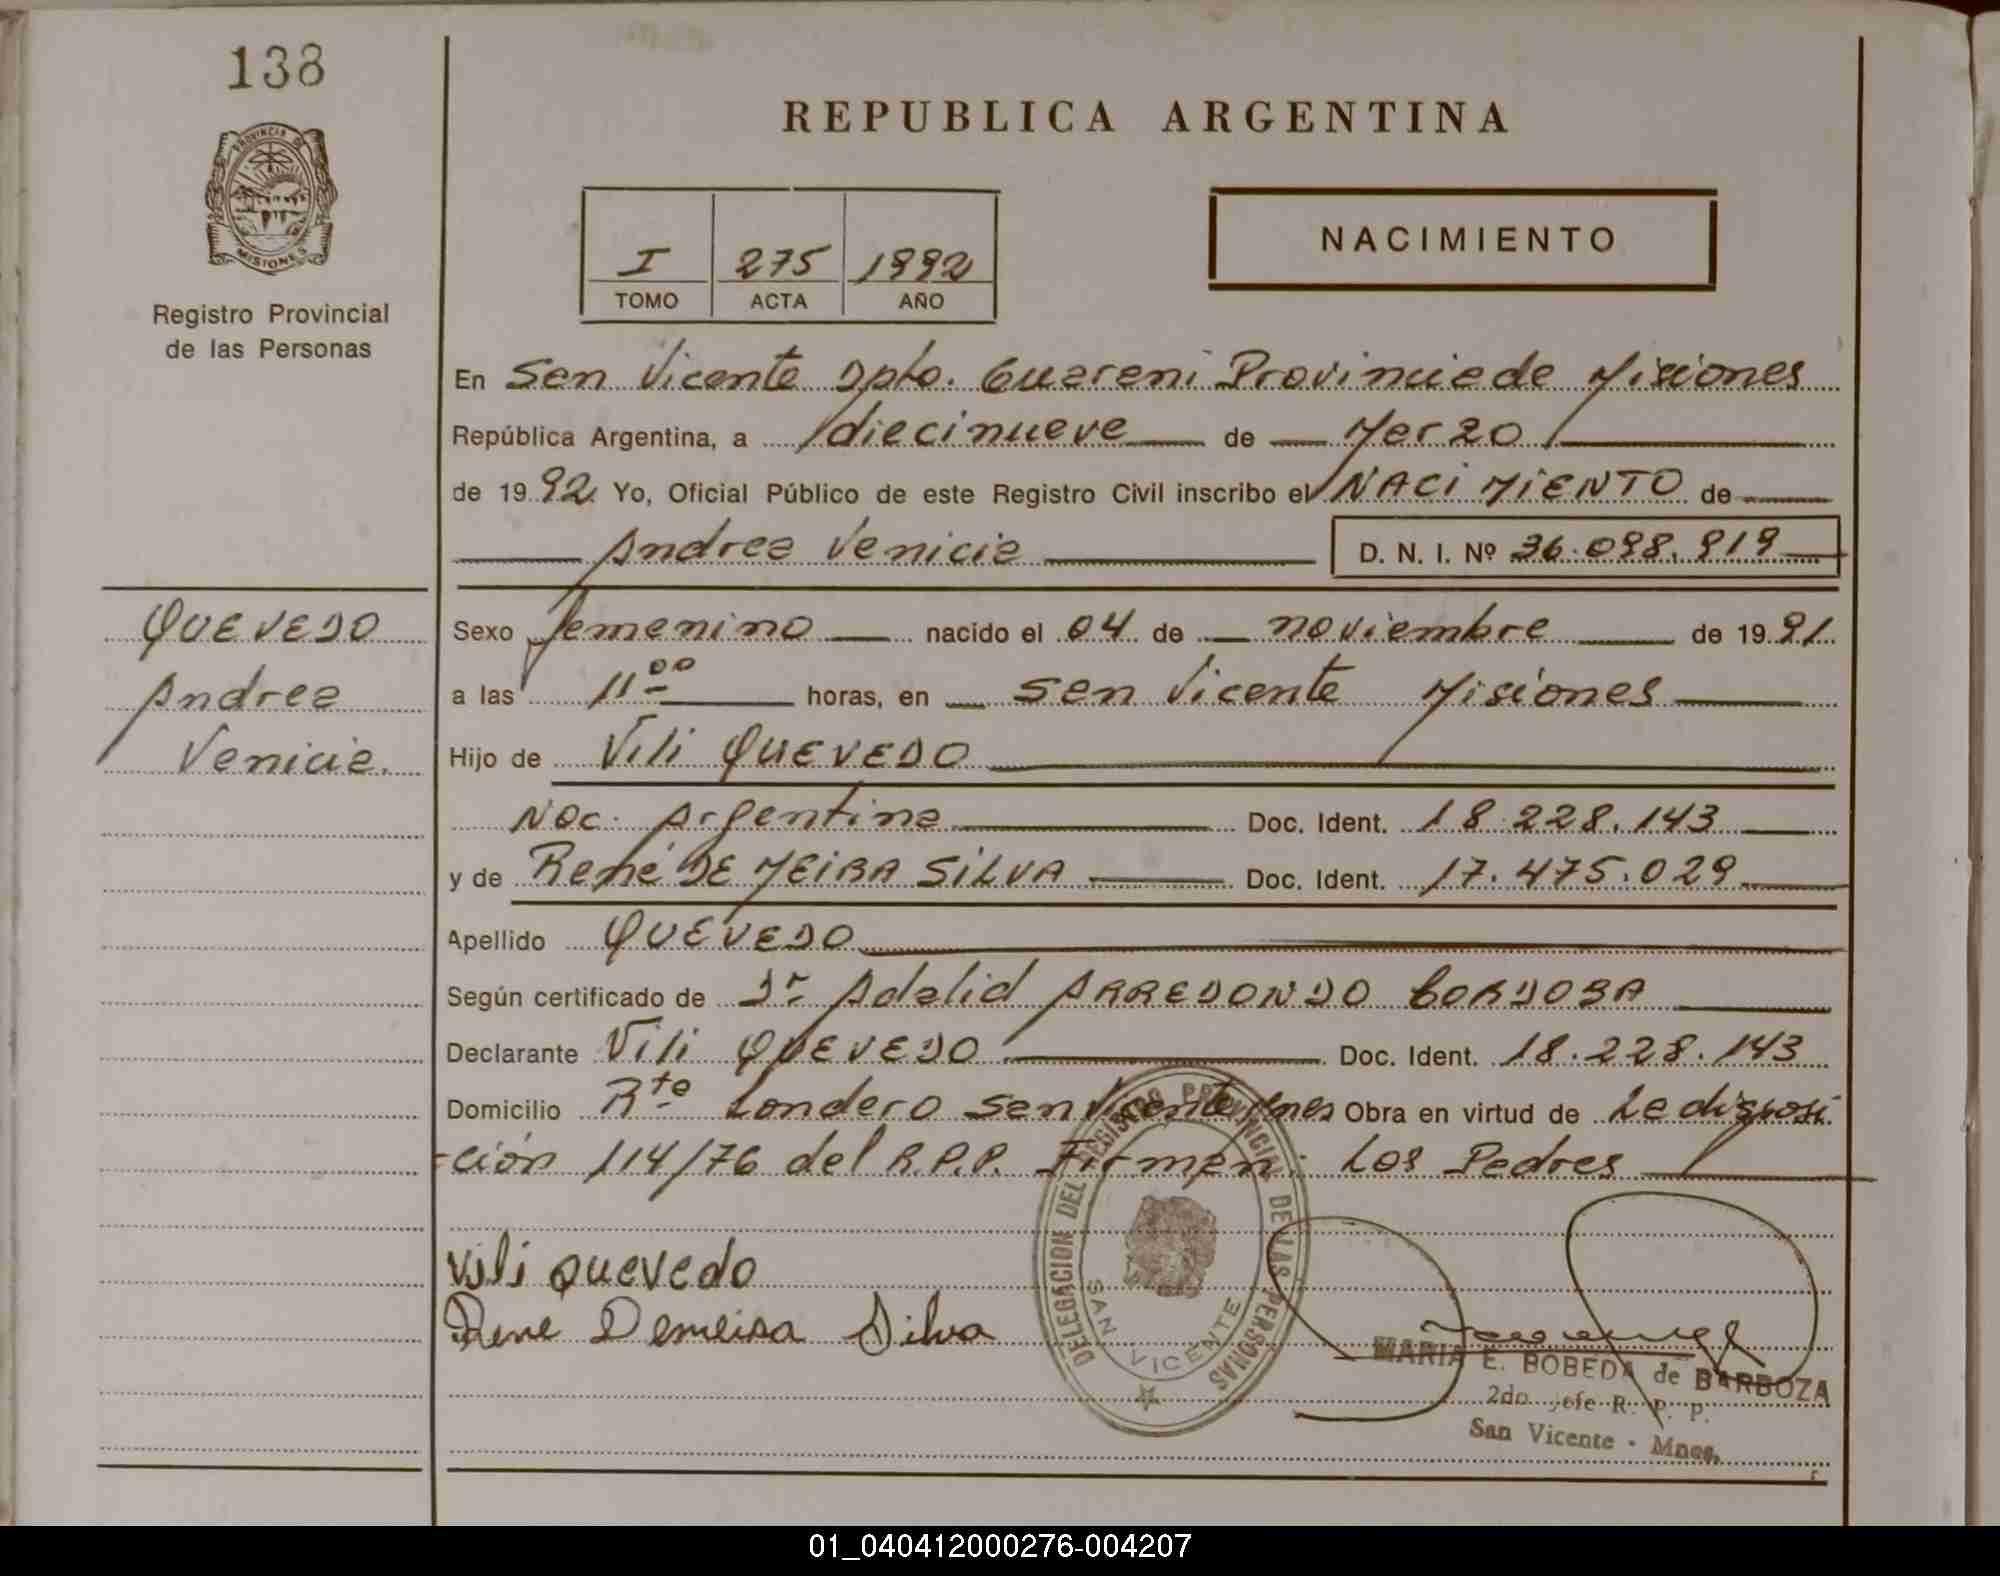 138
PROVINCIA DE
MISIONES
Registro Provincial
de las Personas
REPUBLICA ARGENTINA
I 275 1992
TOMO ACTA AÑO
NACIMIENTO
En San Vicente Dpto. Guarani Provincia de Misiones
República Argentina, a diecinueve de Marzo
de 1992 Yo, Oficial Público de este Registro Civil inscribo el NACIMIENTO de
Andrea Venicia D. N. I. Nº 36.098.919
QUEVEDO
Andrea
Venicia.
Sexo femenino nacido el 04 de noviembre de 1991
a las 11 00 horas, en San Vicente Misiones
Hijo de Vili QUEVEDO
Nac. Argentina Doc. Ident. 18.228.143
y de René DE MEIRA SILVA Doc. Ident. 17.475.029
Apellido QUEVEDO
Según certificado de Dr Adalid ARREDONDO CORDOBA
Declarante Vili QUEVEDO Doc. Ident. 18.228.143
Domicilio Rta Londero San Vicente Mnes Obra en virtud de La disposi
-ción 114/76 del R.P.P. Firman: Los Padres
Vili Quevedo
Rene Demeira Silva
DELEGACION DEL REGISTRO PROVINCIAL DE LAS PERSONAS
SAN VICENTE
MARIA E. BOBEDA de BARBOZA
2do. jefe R. P. P.
San Vicente - Mnes.
01_040412000276-004207